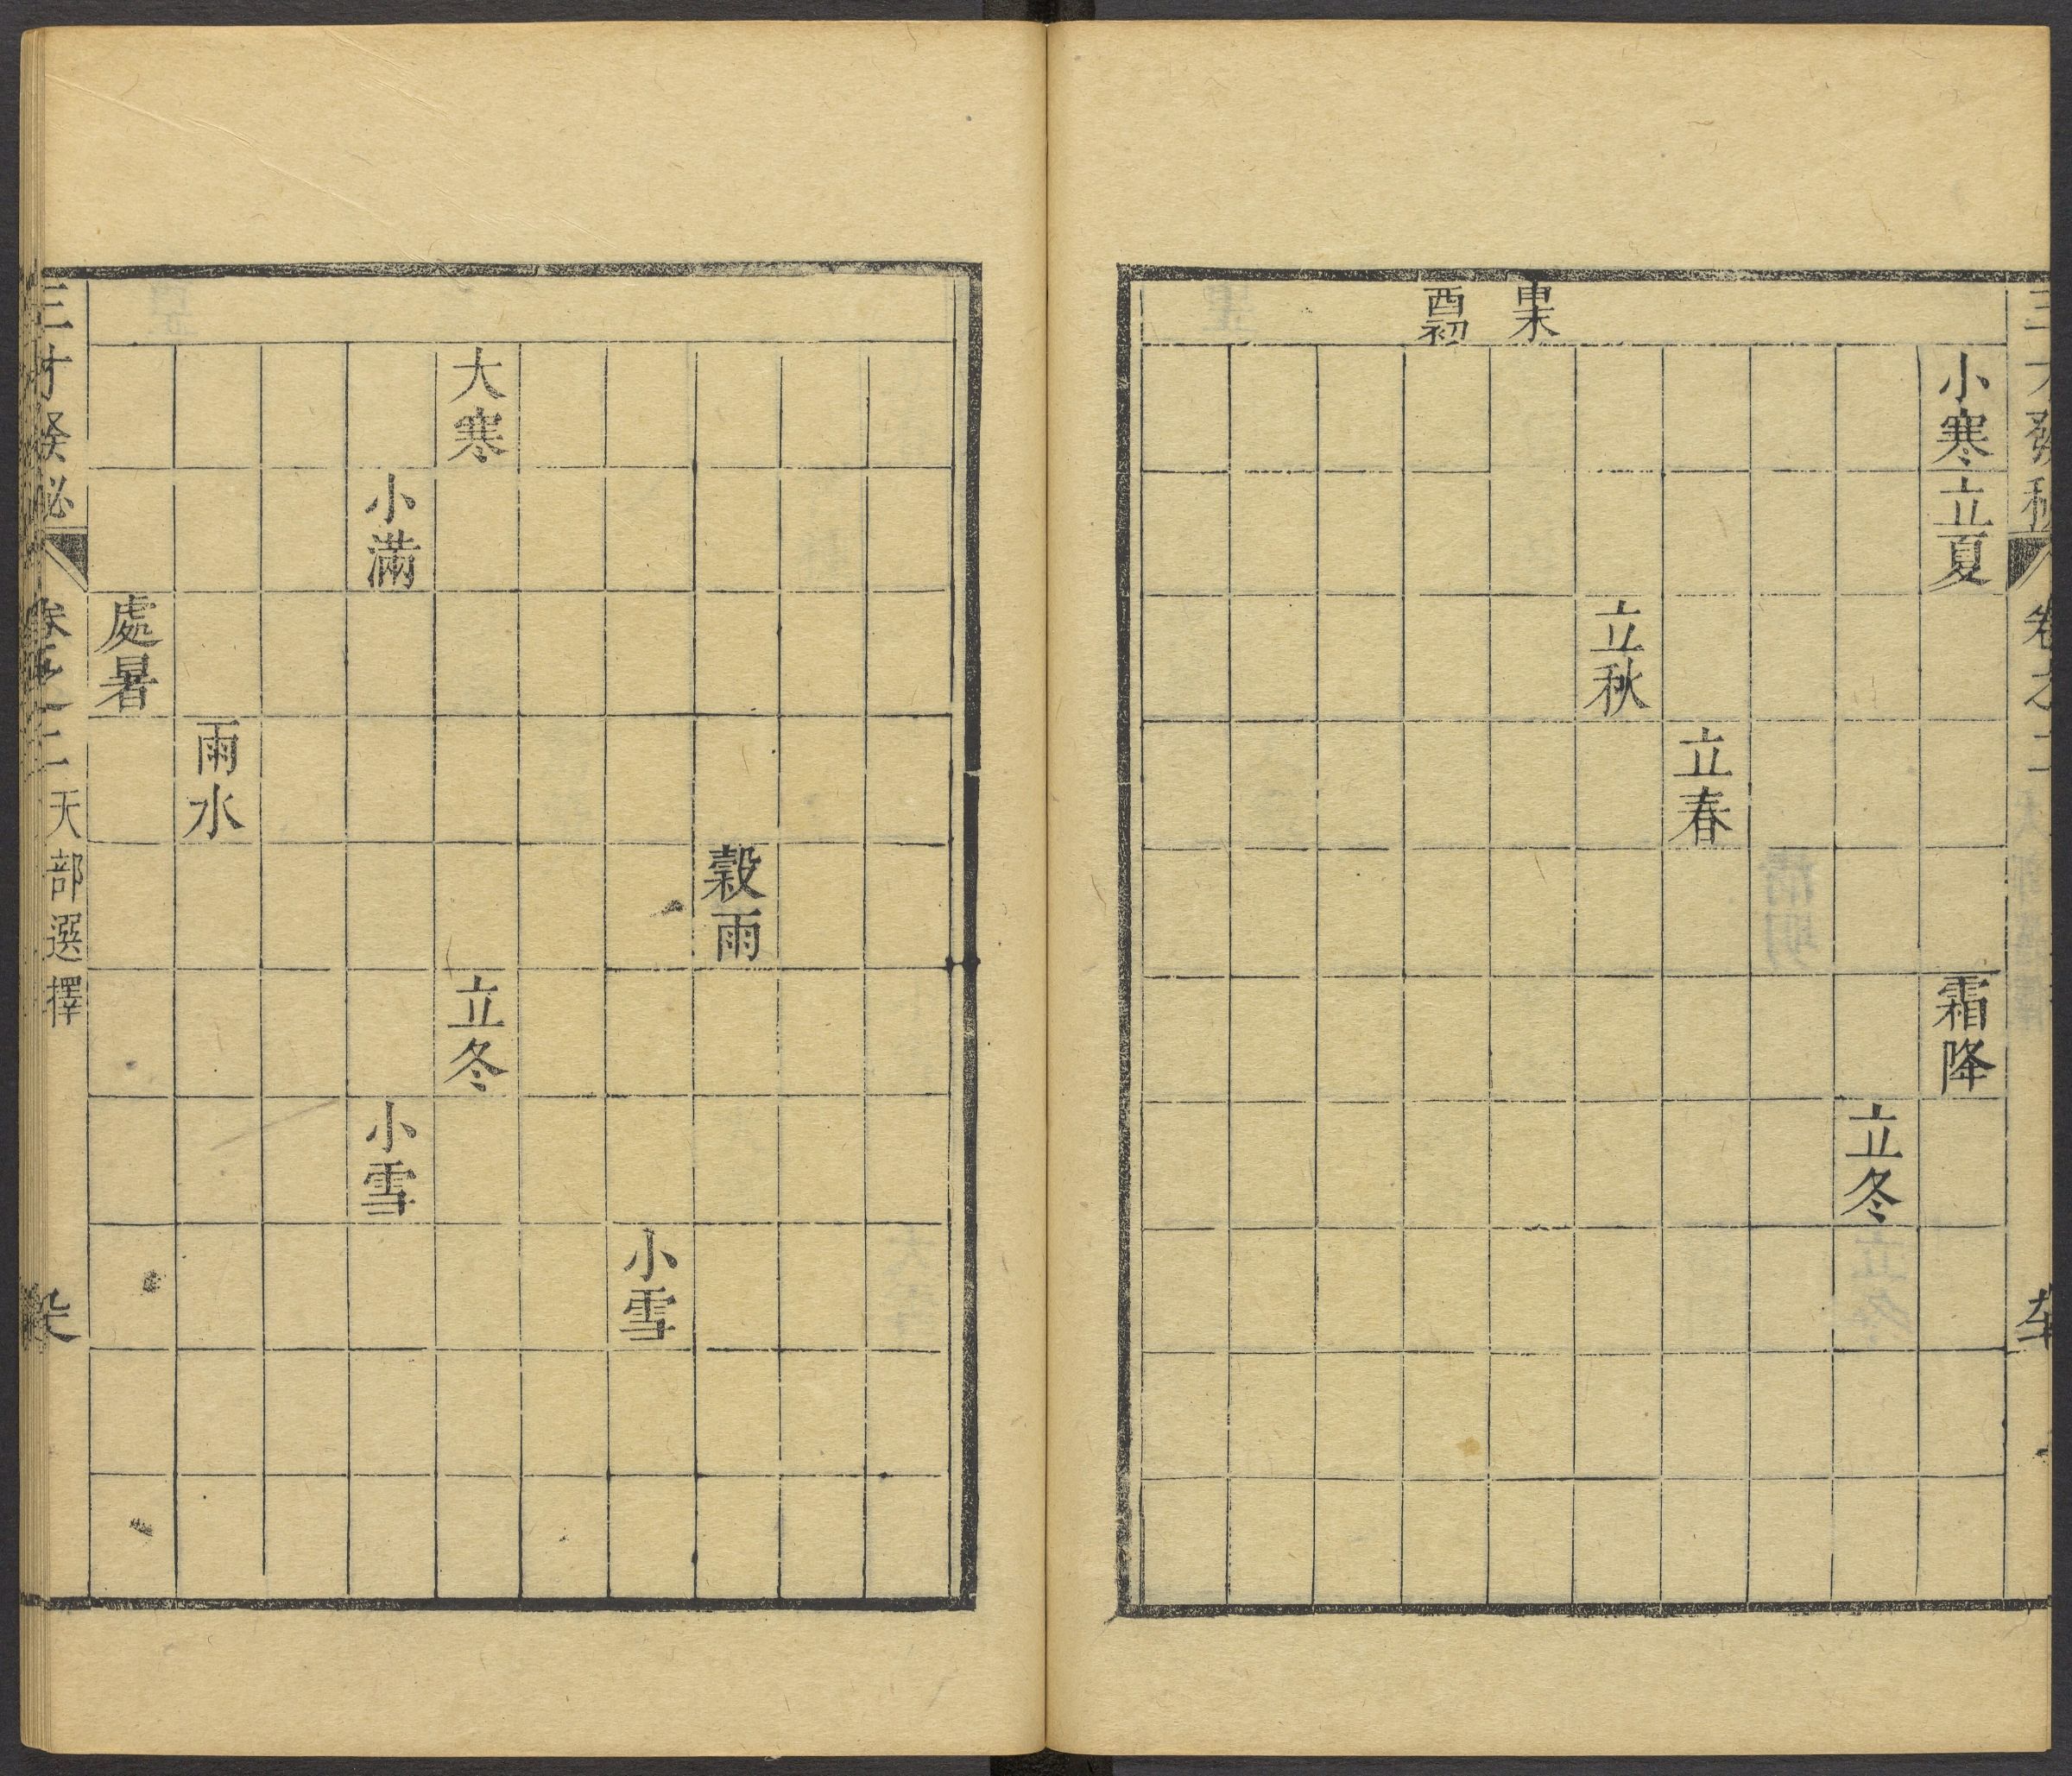 小寒立夏
霜降
立冬
立春
立秋
申末
酉初
穀雨
小雪
大寒
立冬
小滿
小雪
雨水
處暑
三才發秘
卷之二
天部選擇